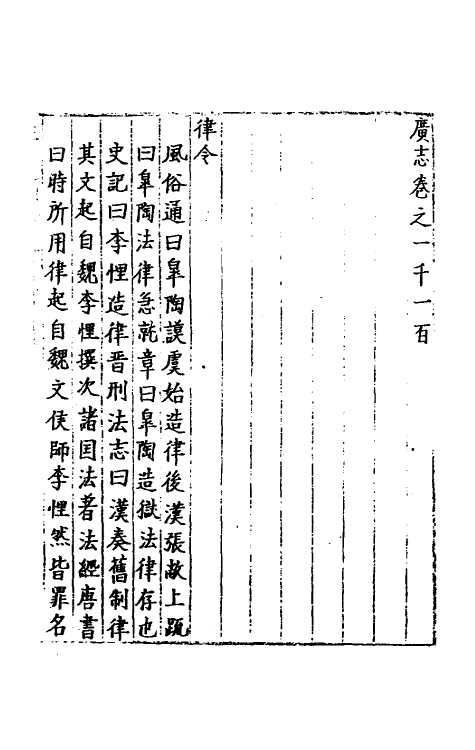 廣志卷之一千一百
律令
風俗通曰皐陶謨虞始造律後漢張敏上䟽
曰皐陶法律急就章曰皐陶造獄法律存也
史記曰李悝造律晋刑法志曰漢奏舊制律
其文起自魏李悝撰次諸国法著法經唐書
曰時所用律起自魏文侯師李悝然皆罪名